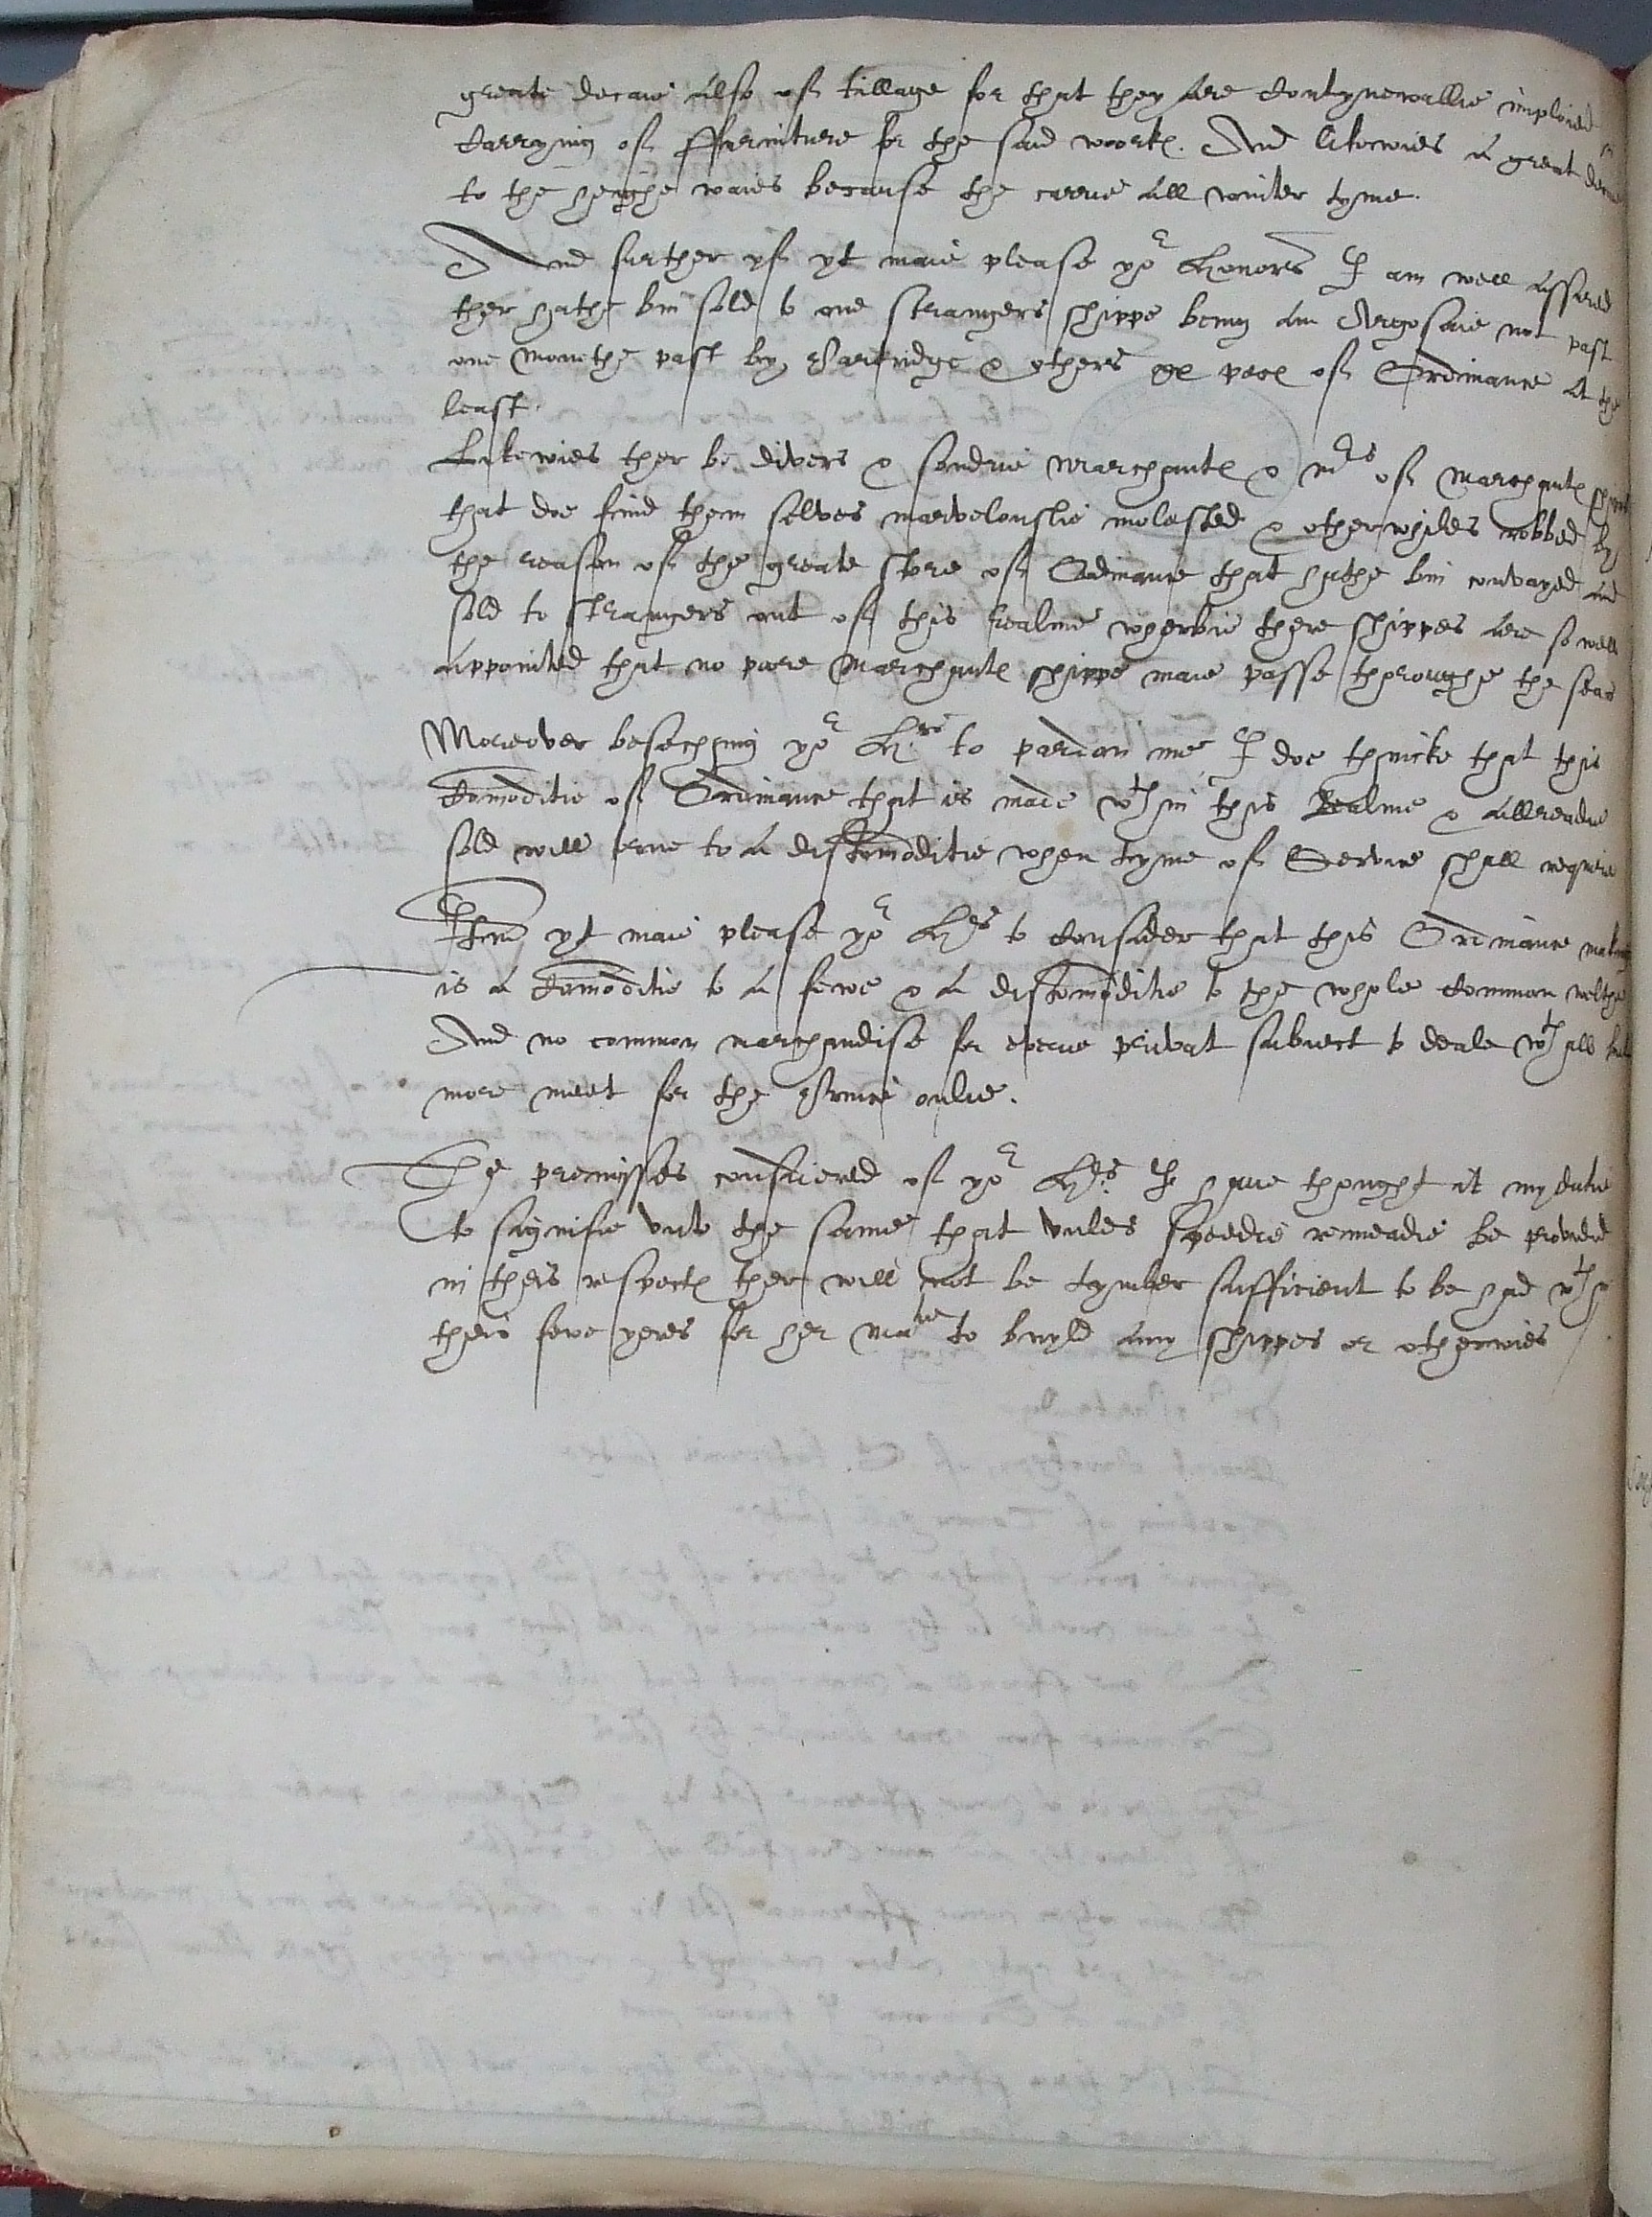 greate decaie also of tillage for that they are contynewallie imploied in
carrying of ffurniture for the said workes. And likewies a great decaie
to the heighe waies because the carrie all winter tyme.
And further yf yt maie please yor Honors I am well assured
ther hathe bin sold to one strangers shippe being an Argosaie not past
one monethe past by Partridge & others peces of Ordinance at the
least.
Likewies ther be divers & sondrie marchantes & mrs of marchantes shippes
that doe find them selves marvelouslie molested & otherwhiles robbed by
the reason of the greate store of Ordinance that hathe bin convayed and
sold to strangers out of this realme wherbie there shippes are so well
appointed that no pore marchantes shippe maie passe thoroughe the seas
Moreover beseching yor Hrs to pardon me I doe thincke that this
comoditie of Ordinance that is made wthin this Realme & allreadie
sold will prove to a discomoditie when tyme of Service shall requier
Item yt maie please yor Hrs to consider that this Ordinance making
is a comoditie to a fewe & a discomoditie to the whole common welthe
And no common marchandise for everie privat subiect to deale wthall but
more meet for the Prince onlie.
The premisses considered of yor Hrs I have thought it my dutie
to signifie unto the same that unles speedie remeadie be provided
in theis respectes ther will not be tymber sufficient to be had wthin
theis fewe yeres for her matie to buyld any shippes or otherwies